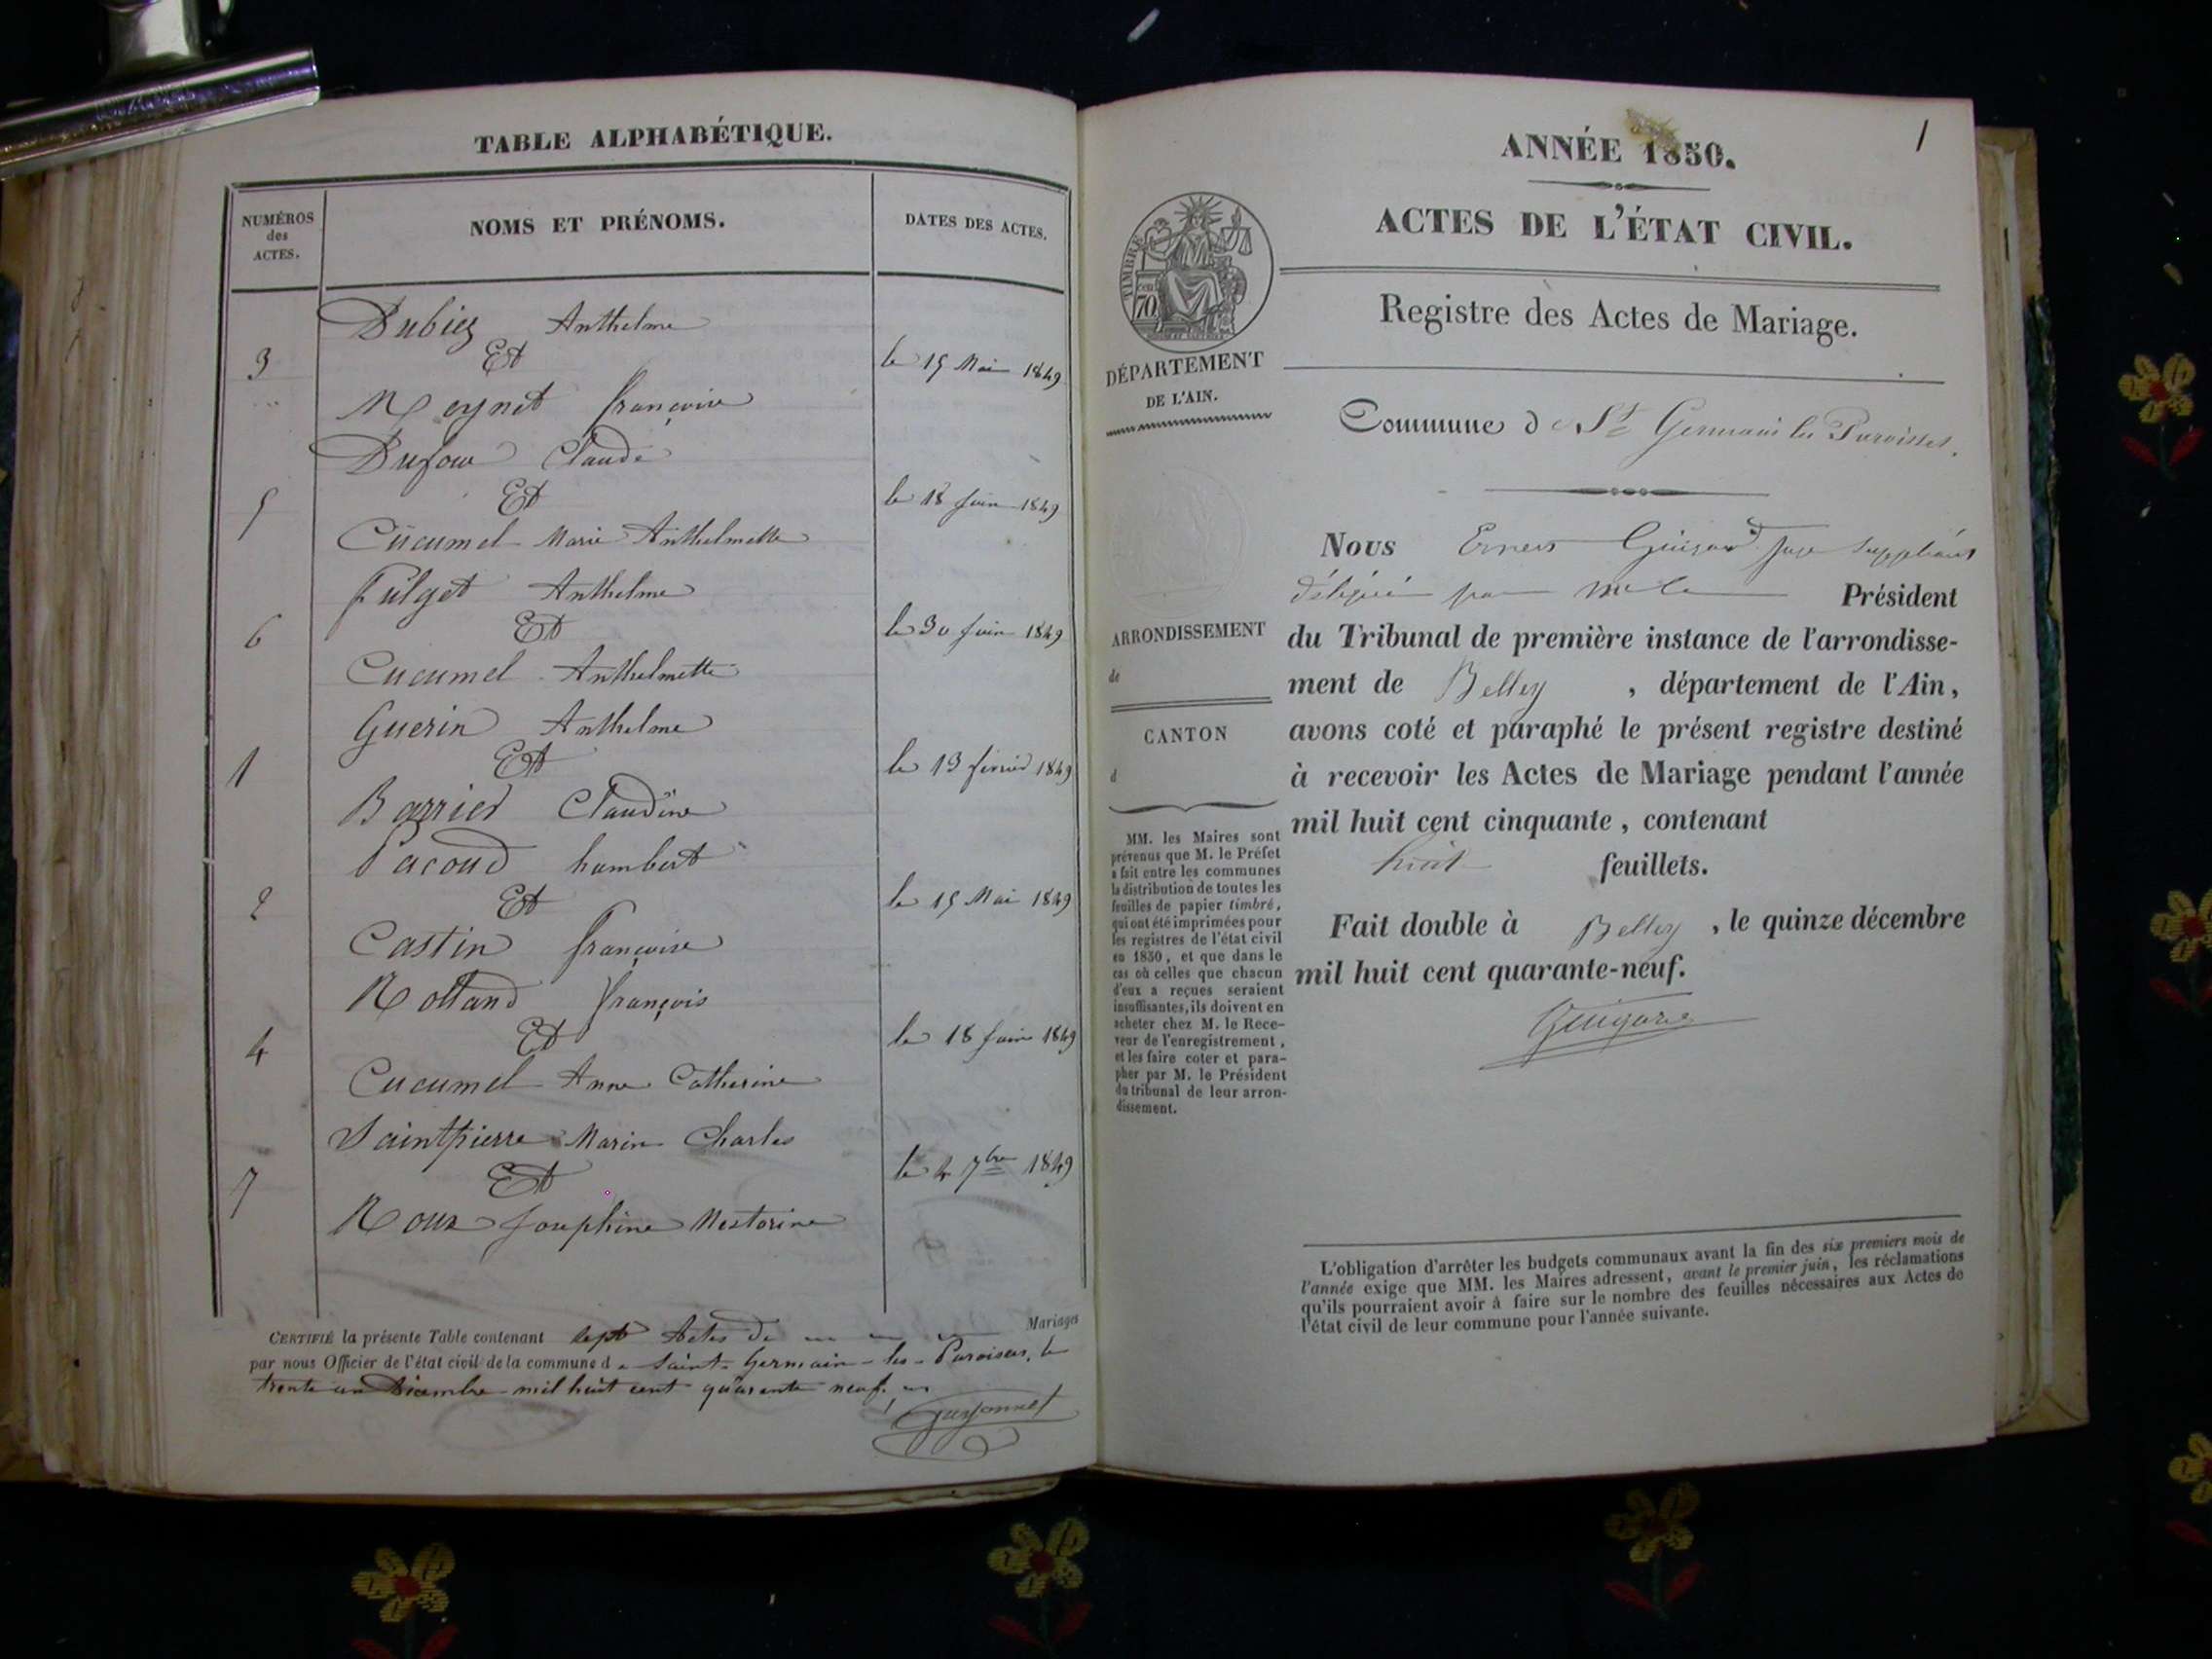 TABLE ALPHABÉTIQUE.
NUMÉROS
des
ACTES.
NOMS ET PRÉNOMS.
DATES DES ACTES.
Dubiez Anthelme
3 Et le 15 Mai 1849
Meynet françoise
Dufour Claude
5 Et le 18 Juin 1849
Cucumel Marie Anthelmette
Fulget Anthelme
6 Et le 30 Juin 1849
Cucumel Anthelmette
Guerin Anthelme
1 Et le 13 février 1849
Barrier Claudine
Pacoud humbert
2 Et le 15 Mai 1849
Castin françoise
Rolland françois
4 Et le 18 Juin 1849
Cucumel Anne Catherine
Saintpierre Marin Charles
7 Et le 4 7bre 1849
Roux Josephine Nestorine
CERTIFIÉ la présente Table contenant sept Actes de Mariages
par nous Officier de l'état civil de la commune de Saint-Germain-les-Paroisses, le
trente un Décembre mil huit cent quarante neuf.
1
ANNÉE 1850.
ACTES DE L'ÉTAT CIVIL.
Registre des Actes de Mariage.
TIMBRE
70
DÉPARTEMENT
DE L'AIN.
Commune de St Germain les Paroisses.
Nous Ernest juge suppléant
délégué par Mr le Président
du Tribunal de première instance de l'arrondisse-
ment de Belley, département de l'Ain,
avons coté et paraphé le présent registre destiné
à recevoir les Actes de Mariage pendant l'année
mil huit cent cinquante, contenant
huit feuillets.
Fait double à Belley, le quinze décembre
mil huit cent quarante-neuf.
ARRONDISSEMENT
de
CANTON
d
MM. les Maires sont
prévenus que M. le Préfet
a fait entre les communes
la distribution de toutes les
feuilles de papier timbré,
qui ont été imprimées pour
les registres de l'état civil
en 1850, et que dans le
cas où celles que chacun
d'eux a reçues seraient
insuffisantes, ils doivent en
acheter chez M. le Rece-
veur de l'enregistrement,
et les faire coter et para-
pher par M. le Président
du tribunal de leur arron-
dissement.
L'obligation d'arrêter les budgets communaux avant la fin des six premiers mois de
l'année exige que MM. les Maires adressent, avant le premier juin, les réclamations
qu'ils pourraient avoir à faire sur le nombre des feuilles nécessaires aux Actes de
l'état civil de leur commune pour l'année suivante.